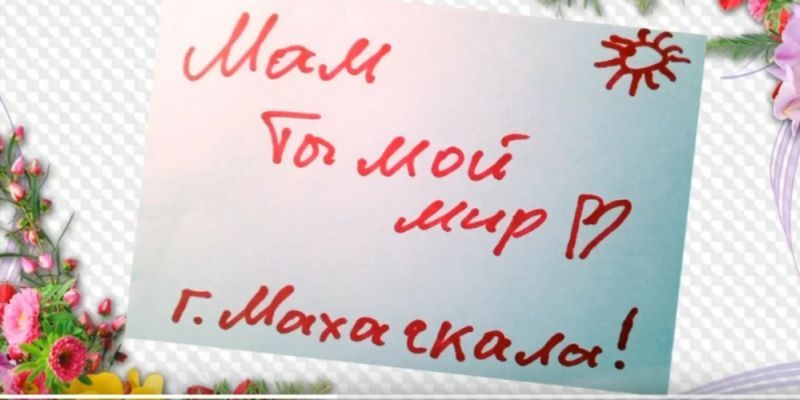 Мам
Ты мой
мир
г. Махачкала!